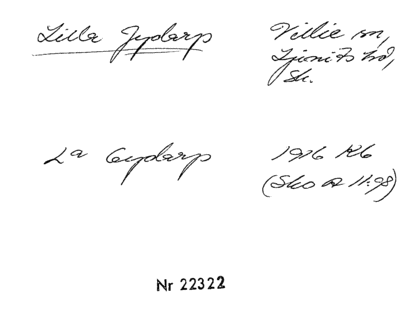 Lilla Jydarp
Villie sn,
Ljunits hd,
Sk.
La Gydarp
1926 Kb
(Sko A 11:98)
Nr 22322